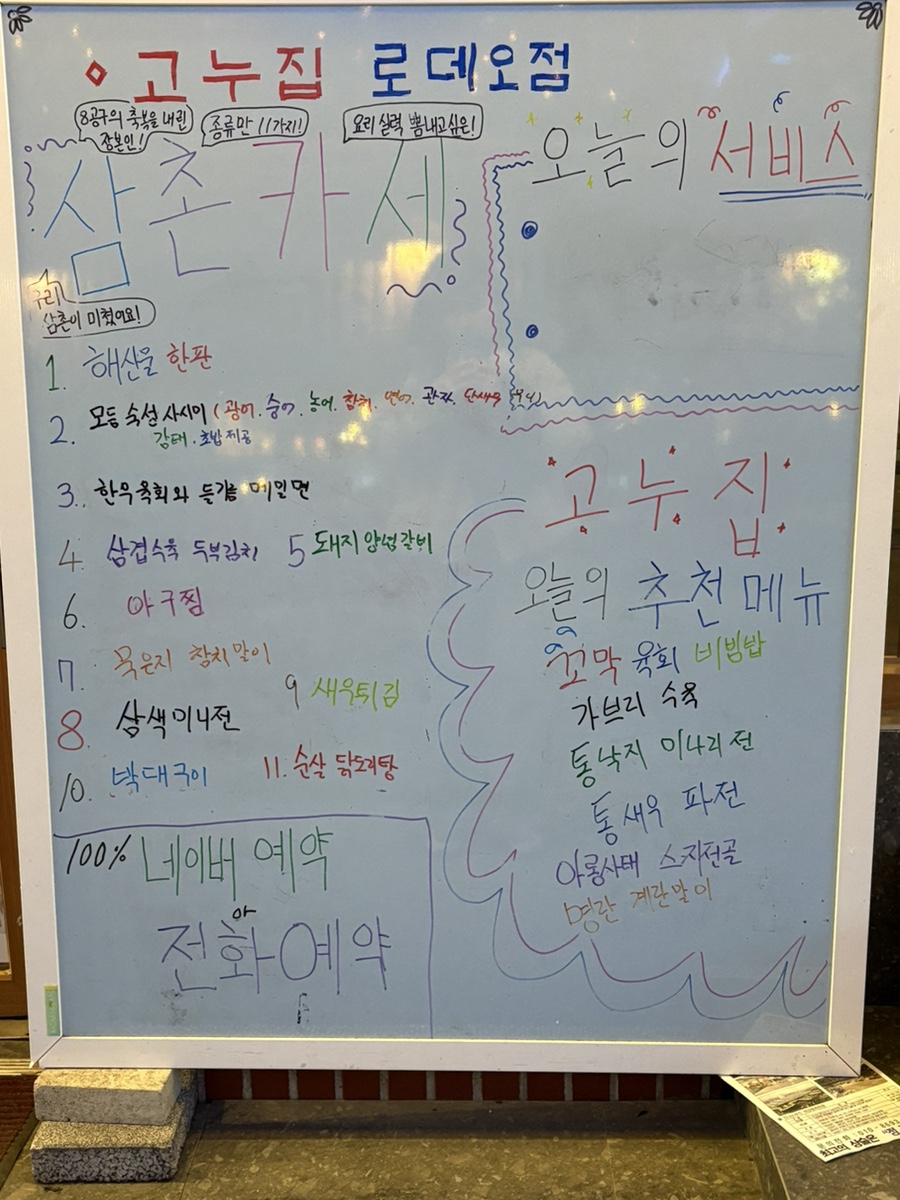 고누집 로데오점
8공구의 축복을 내린
장본인!
종류만 11가지!
요리 실력 뽐내고싶은!
삼촌카세
우리
삼촌이 미쳤어요!
1. 해산물 한판
2. 모둠 숙성 사시미 (광어. 숭어. 농어. 참치. 연어. 관자. 단새우
감태. 초밥제공
3. 한우육회와 들기름 메밀면
4 삼겹수육 두부김치
5 돼지양념갈비
6. 아구찜
7 묵은지 참치말이
8. 삼색미니전
9 새우튀김
10. 박대구이
11. 순살 닭도리탕
100% 네이버 예약
전화 예약
오늘의 서비스
고누집
오늘의 추천메뉴
꼬막 육회 비빔밥
가브리 수육
통낙지 미나리전
통새우 파전
아롱사태 스지전골
명란 계란말이
최고의 상술은